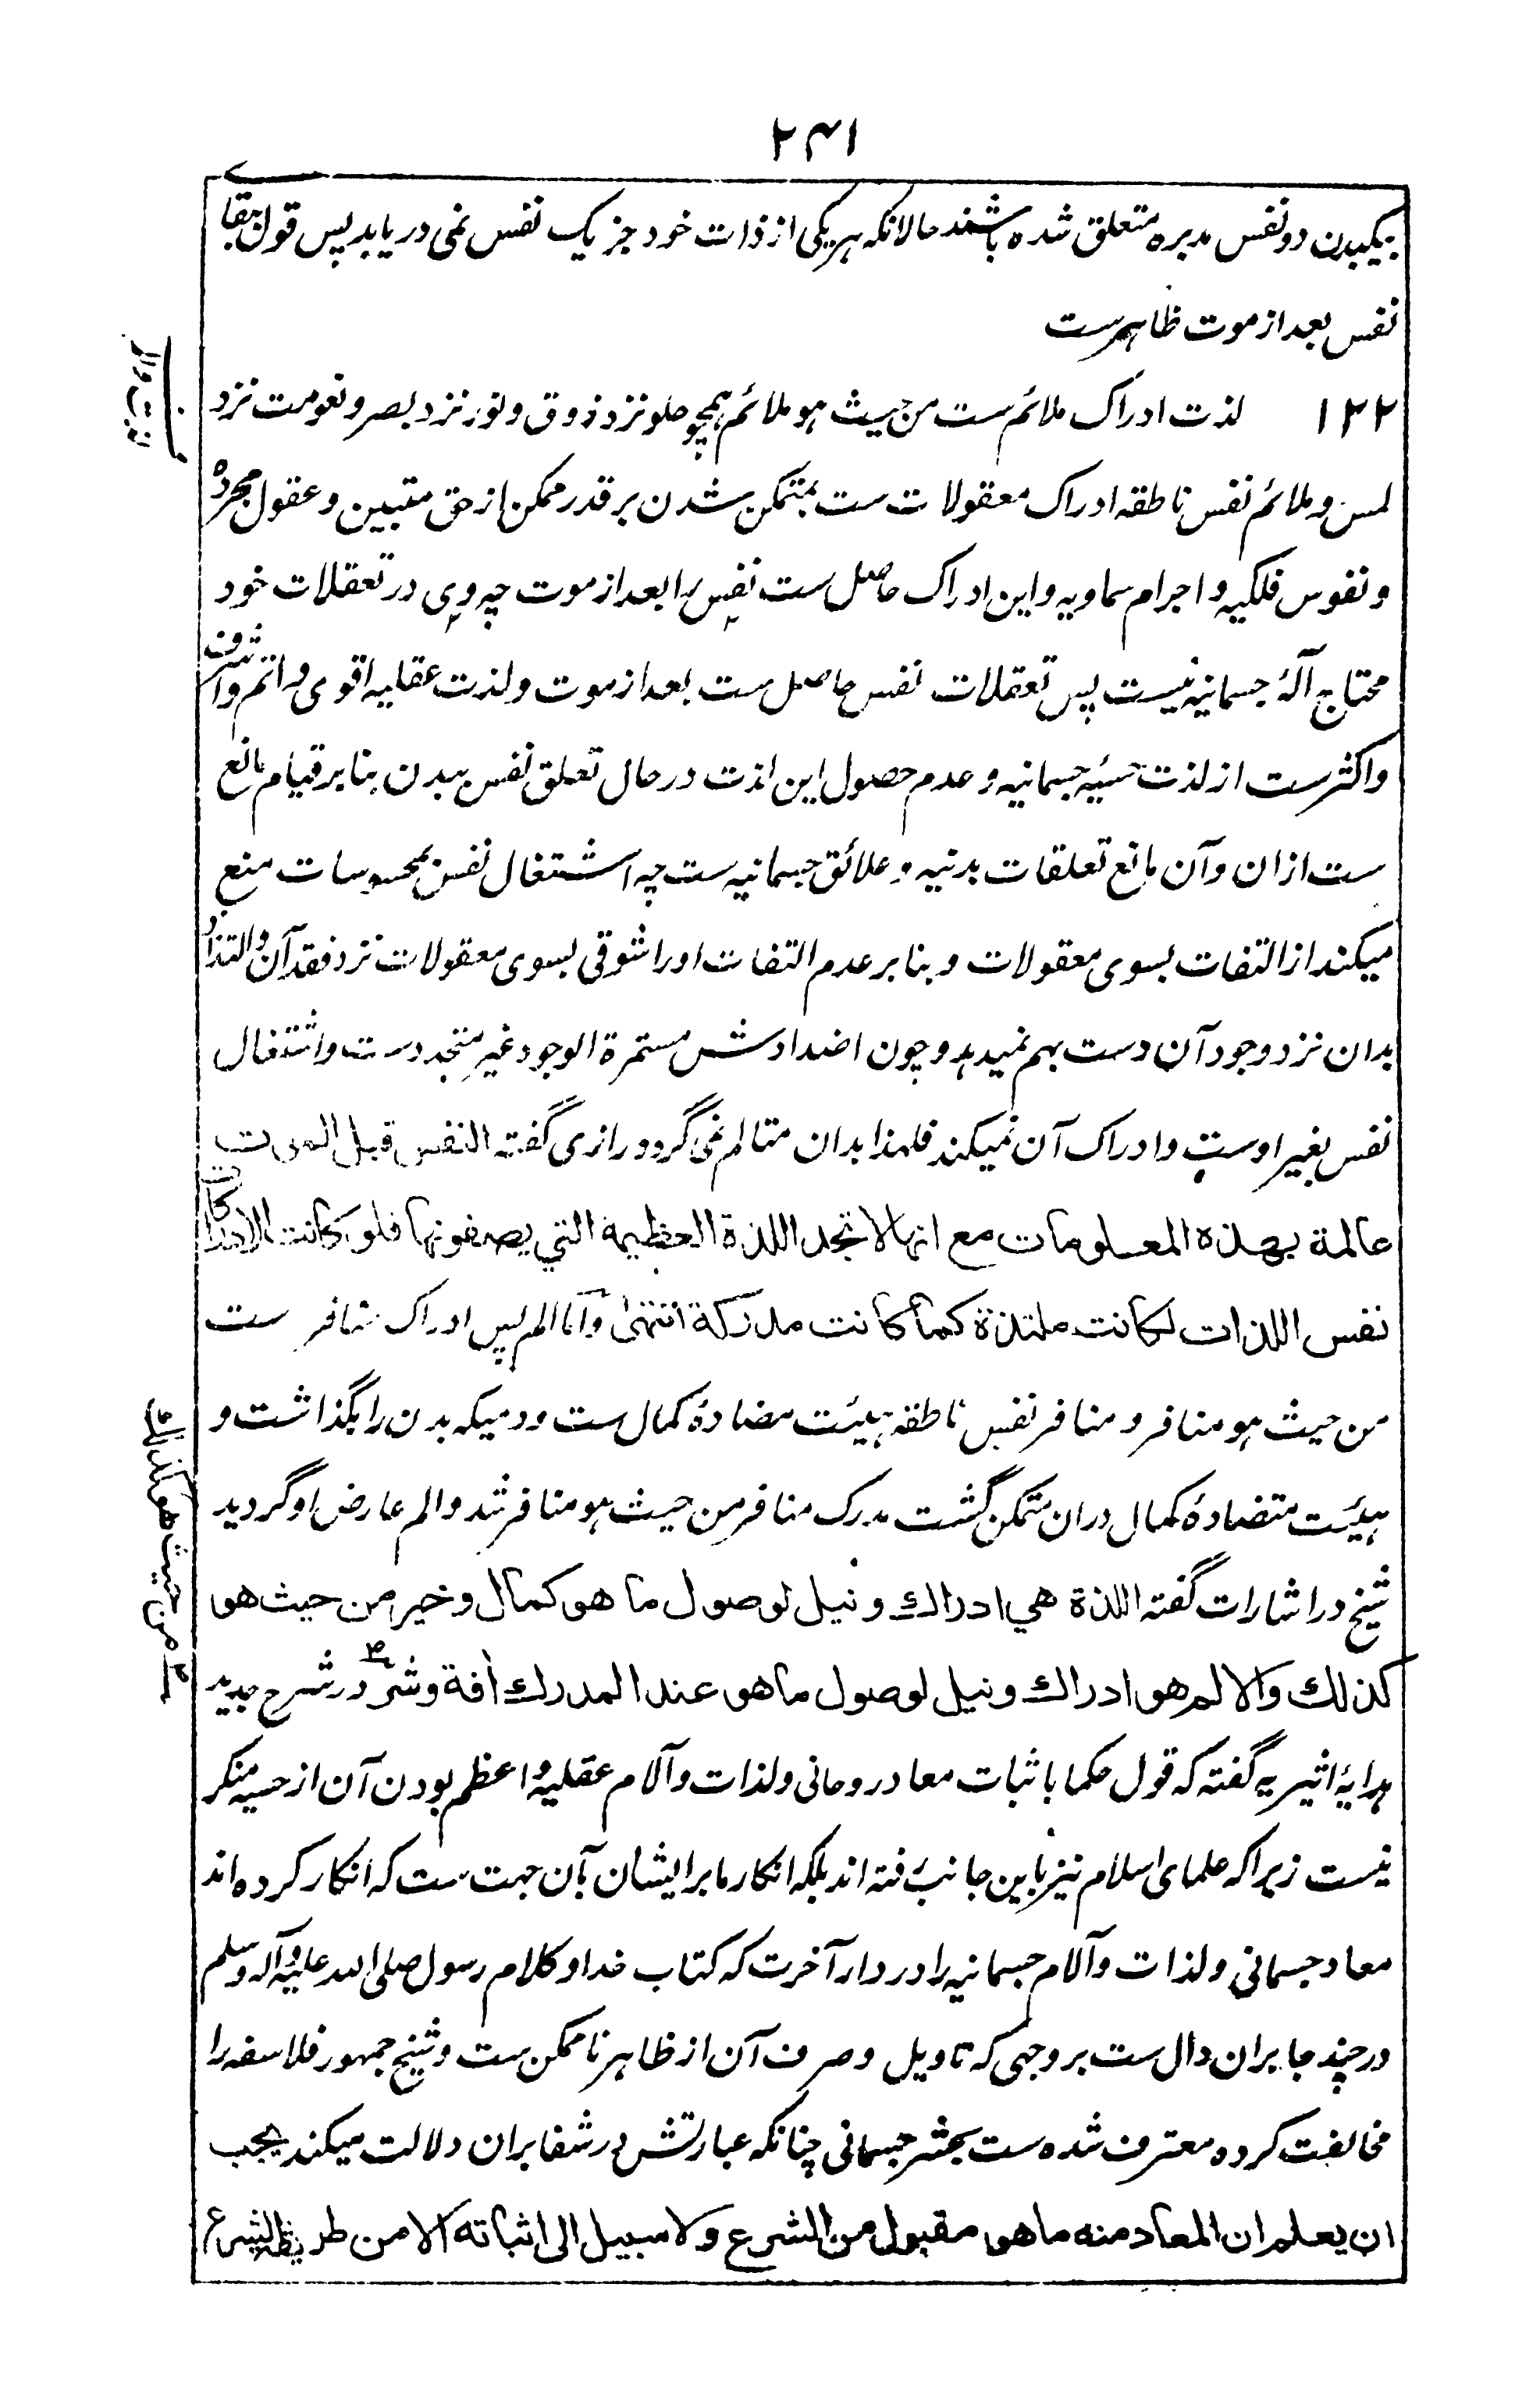 ۲۴۱
بیکبدن دو نفس مدبره متعلق شده باشند حالانکه هر یکی از ذات خود جز یک نفس نمی دریابد پس قول ببقا
نفس بعد از موت ظاهرست
۱۲۲ لذت ادراک ملائم ست من حیث هو ملائم همچو حلو نزد ذوق و نور نزد بصر و نعومت نزد
لمس و ملائم نفس ناطقه ادراک معقولات ست بمتمکن شدن بر قدر ممکن از حق متبین و عقول مجرده
و نفوس فلکیه و اجرام سماویه و این ادراک حاصل ست نفس را بعد از موت چه وی در تعقلات خود
محتاج آلۀ جسمانیه نیست پس تعقلات نفس حاصل ست بعد از موت و لذت عقلیه اقوی و اتم و اشرف
و اکثرست از لذت حسیه جسمانیه و عدم حصول این لذت در حال تعلق نفس ببدن بنا بر قیام مانع
ست ازان و آن مانع تعلقات بدنیه و علائق جسمانیه ست چه اشتغال نفس بمحسوسات منع
میکند از التفات بسوی معقولات و بنا بر عدم التفات او را شوقی بسوی معقولات نزد فقد آن و التذاذ
بدان نزد وجود آن دست بهم نمیدهد و چون اضدادش مستمرة الوجود غیر متجددست و اشتغال
نفس بغیر اوست و ادراک آن نمیکند فلهذا بدان متالم نمی گردد و رازی گفته النفس قبل الموت
عالمة بهذه المعلومات مع انها لا تجد اللذة العظیمة التي یصفونها فلو کانت الادراکات
نفس اللذات لکانت ملتذة کما کانت مدرکة انتهی و اما الم پس ادراک منافر ست
من حیث هو منافر و منافر نفس ناطقه هیئت مضادۀ کمال ست و دمیکه بدن را بگذاشت و
هیئت متضادۀ کمال دران متمکن گشت مدرک منافر من حیث هو منافر شد و الم عارض او گردید
شیخ در اشارات گفته اللذة هي ادراك و نیل لوصول ما هو کمال و خیر من حیث هو
کذلك و الالم هو ادراك و نیل لوصول ما هو عند المدرك آفة و شر در شرح جدید
هدایۀ اثیریه گفته که قول حکما باثبات معاد روحانی و لذات و آلام عقلیه و اعظم بودن آن از حسیه منکر
نیست زیرا که علمای اسلام نیز باین جانب رفته اند بلکه انکار ما بر ایشان بآن جهت ست که انکار کرده اند
معاد جسمانی و لذات و آلام جسمانیه را در دار آخرت که کتاب خدا و کلام رسول صلی الله علیه و آله و سلم
در چند جا بران دال ست بر وجهی که تاویل و صرف آن از ظاهر ناممکن ست و شیخ جمهور فلاسفه را
مخالفت کرده معترف شده ست بحشر جسمانی چنانکه عبارتش در شفا بران دلالت میکند یجب
ان یعلم ان المعاد منه ما هو مقبول من الشرع و لا سبیل الی اثباته الا من طریقة الشرع
من حیث هو کذلك